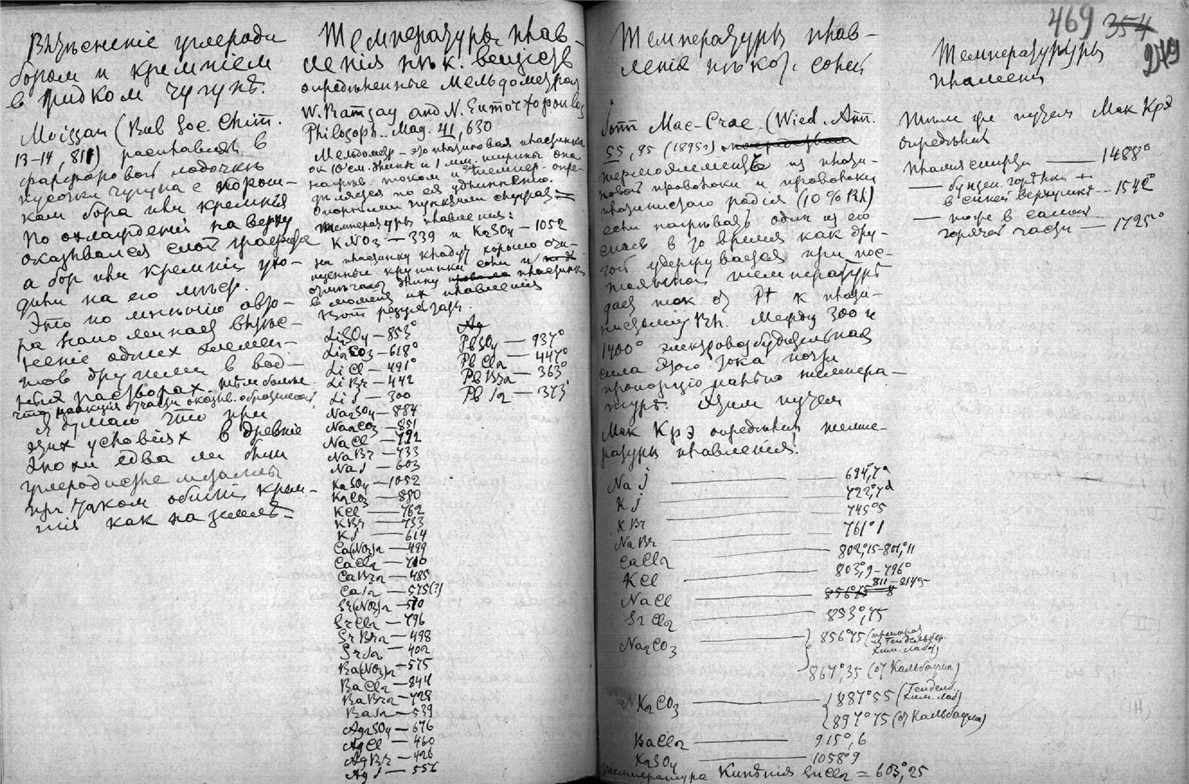 Вытѣсненіе углерода
боромъ и кремніемъ
в жидком чугунѣ.
Moissan (Bul Soc. Chim.
13-14, 811) расплавлялъ в
фарфоровой лодочкѣ
кусочки чугуна с порош-
ком бора или кремнія
По охлажденіи на верху
оказывался слой графита
а бор или кремній ухо-
дили на его мѣсто.
Это по мнѣнію авто-
ра напоминает вытѣс-
неніе одних элемен-
тов другими в вод-
ных растворах, тѣм болѣе
что реакция отчасти
Я думаю что при
этих условіях в древніе
эпохи едва ли были
углеродистые металлы
при таком обиліи крем-
нія как на землѣ.
Температуры плав-
ленія нѣк. веществ
определенные Мельдометром
W. Ramsay and N. Eumorfopoulos
Philosoph. Mag. 41, 630
Мельдометр - это платиновая пластинка
ок 10 см. длины и 1 мм. ширины она
нагрѣв. током и температ. опре-
дѣляется по ея удлиненію.
Опорными пунктами служат
температуры плавления:
KNO3 — 339 и K2SO4 — 1052
на пластинку кладут хорошо очи-
щенные крупинки соли и
отмѣчают длину пластинки
в момент их плавления
Вот результаты.
Li2SO4 — 853°
Li2CO3 — 618°
LiCl — 491°
LiBr — 442
LiJ — 300
Na2SO4 — 884
Na2CO3 — 851
NaCl — 792
NaBr — 733
NaJ — 603
K2SO4 — 1052
K2CO3 — 880
KCl — 762
KBr — 733
KJ — 614
Ca(NO3)2 — 499
CaCl2 — 710
CaBr2 — 485
CaJ2 — 575(?)
Sr(NO3)2 — 570
SrCl2 — 796
SrBr2 — 498
SrJ2 — 402
Ba(NO3)2 — 575
BaCl2 — 844
BaBr2 — 728
BaJ2 — 539
Ag2SO4 — 676
AgCl — 460
AgBr — 426
AgJ — 556
Ag
PbSO4 — 937°
PbCl2 — 447°
PbBr2 — 363°
PbJ2 — 373°
469 354
249
Температуры плав-
ления нѣкот. солей
John Mac-Crae (Wied. Ann.
55, 95 (1895))
термоэлемент из плати-
новой проволоки и проволоки
платинистаго родія (10% Rh)
если нагрѣвать один из его
спаев в то время как дру-
гой удерживается при пос-
тоянной температурѣ
дает ток от Pt к плати-
нистому Rh. Между 300 и
1400° электровозбудительная
сила этого тока почти
пропорціональна темпера-
турѣ. Этим путем
Мак Крэ определил темпе-
ратуры плавления:
NaJ — 694,7°
KJ — 722°,7
KBr — 745°5
NaBr — 761°1
CaCl2 — 802°,15-801°,11
KCl — 803°,9-796°
NaCl — 811-814°5
SrCl2 — 853°,75
Na2CO3 — 856°75 (препарат
из Гейдельбер.
хим. лабор)
867°,35 (от Кальбаума)
K2CO3 — 887°55 (Гейдель.
хим. лаб)
897°75 (от Кальбаума)
BaCl2 — 915°,6
K2SO4 — 1058°9
температура кипѣнія SnCl2 = 603°,25
Температуры
пламени
Тѣм же путем Мак Крэ
определил
пламя свѣчи — 1488°
— бунзен. горѣлки
в синей верхушкѣ — 1542°
— тоже в самой
горячей части — 1725°